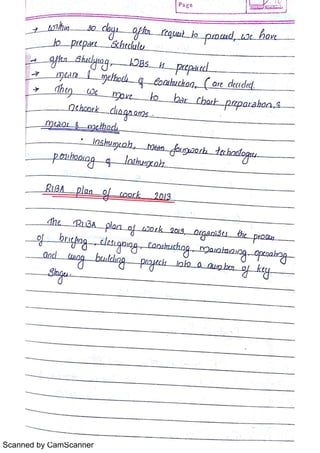 Page
→ within 30 days after request to proceed, we have
to prepare Schedule
→ after studying, WBS is prepared
→ means & methods of construction, (are decided.
→ then we move to bar chart preparation, &
network diagrams.
means & methods
• Instruments, main formwork technology,
positioning of Instruments
RIBA plan of work 2013
The RIBA plan of work 2013, organises the process
of briefing, designing, constructing, maintaining, operating
and using building projects into a number of key
Stages.
Scanned by CamScanner